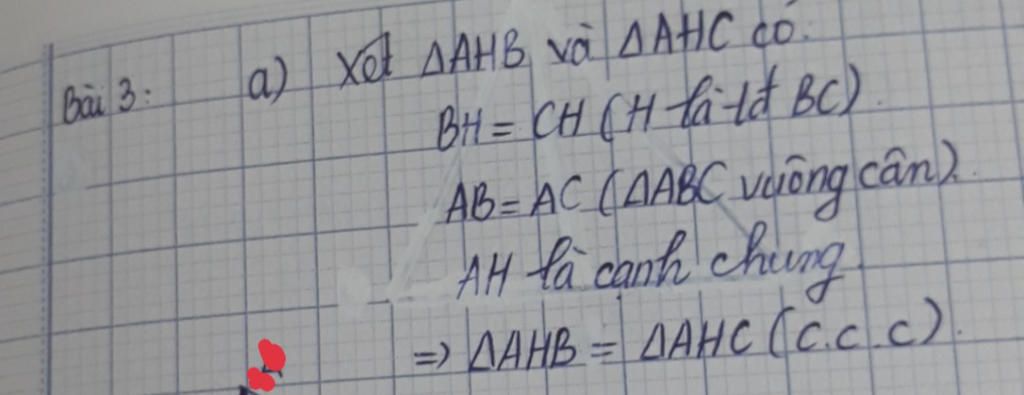 Bài 3: a) Xét ΔAHB và ΔAHC có:
BH = CH (H là tđ BC).
AB = AC (ΔABC vuông cân).
AH là cạnh chung
=> ΔAHB = ΔAHC (c.c.c).